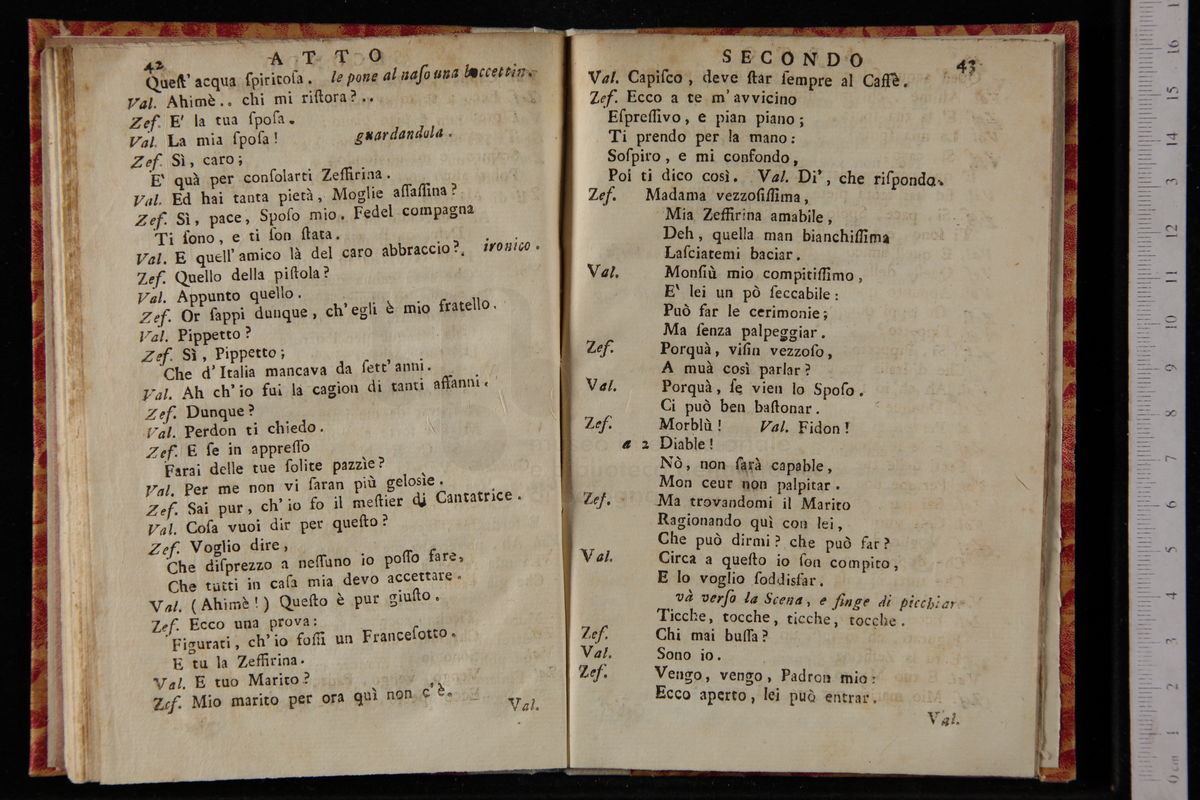 42 ATTO
Queſt' acqua ſpiritoſa. le pone al naſo una boccettin.
Val. Ahimè.. chi mi riſtora?..
Zef. E' la tua ſpoſa.
Val. La mia ſpoſa! guardandola.
Zef. Sì, caro;
E' quà per conſolarti Zeffirina.
Val. Ed hai tanta pietà, Moglie aſſaſſina?
Zef. Sì, pace, Spoſo mio. Fedel compagna
Ti ſono, e ti ſon ſtata.
Val. E quell' amico là del caro abbraccio?. ironico.
Zef. Quello della piſtola?
Val. Appunto quello.
Zef. Or ſappi dunque, ch' egli è mio fratello.
Val. Pippetto?
Zef. Sì, Pippetto;
Che d' Italia mancava da ſett' anni.
Val. Ah ch' io fui la cagion di tanti affanni.
Zef. Dunque?
Val. Perdon ti chiedo.
Zef. E ſe in appreſſo
Farai delle tue ſolite pazzìe?
Val. Per me non vi ſaran più geloſìe.
Zef. Sai pur, ch' io fo il meſtier di Cantatrice.
Val. Coſa vuoi dir per queſto?
Zef. Voglio dire,
Che diſprezzo a neſſuno io poſſo fare,
Che tutti in caſa mia devo accettare.
Val. (Ahimè!) Queſto è pur giuſto.
Zef. Ecco una prova:
Figurati, ch' io foſſi un Franceſotto.
E tu la Zeffirina.
Val. E tuo Marito?
Zef. Mio marito per ora quì non c'è.
Val.
SECONDO 43
Val. Capiſco, deve ſtar ſempre al Caffè.
Zef. Ecco a te m' avvicino
Eſpreſſivo, e pian piano;
Ti prendo per la mano:
Soſpiro, e mi confondo,
Poi ti dico così. Val. Di', che riſpondo.
Zef. Madama vezzoſiſſima,
Mia Zeffirina amabile,
Deh, quella man bianchiſſima
Laſciatemi baciar.
Val. Monſiù mio compitiſſimo,
E' lei un pò ſeccabile:
Può far le cerimonie;
Ma ſenza palpeggiar.
Zef. Porquà, viſin vezzoſo,
A muà così parlar?
Val. Porquà, ſe vien lo Spoſo.
Ci può ben baſtonar.
Zef. Morblù! Val. Fidon!
a 2 Diable!
Nò, non ſarà capable,
Mon ceur non palpitar.
Zef. Ma trovandomi il Marito
Ragionando quì con lei,
Che può dirmi? che può far?
Val. Circa a queſto io ſon compito,
E lo voglio ſoddisfar.
và verſo la Scena, e finge di picchiar
Ticche, tocche, ticche, tocche.
Zef. Chi mai buſſa?
Val. Sono io.
Zef. Vengo, vengo, Padron mio:
Ecco aperto, lei può entrar.
Val.